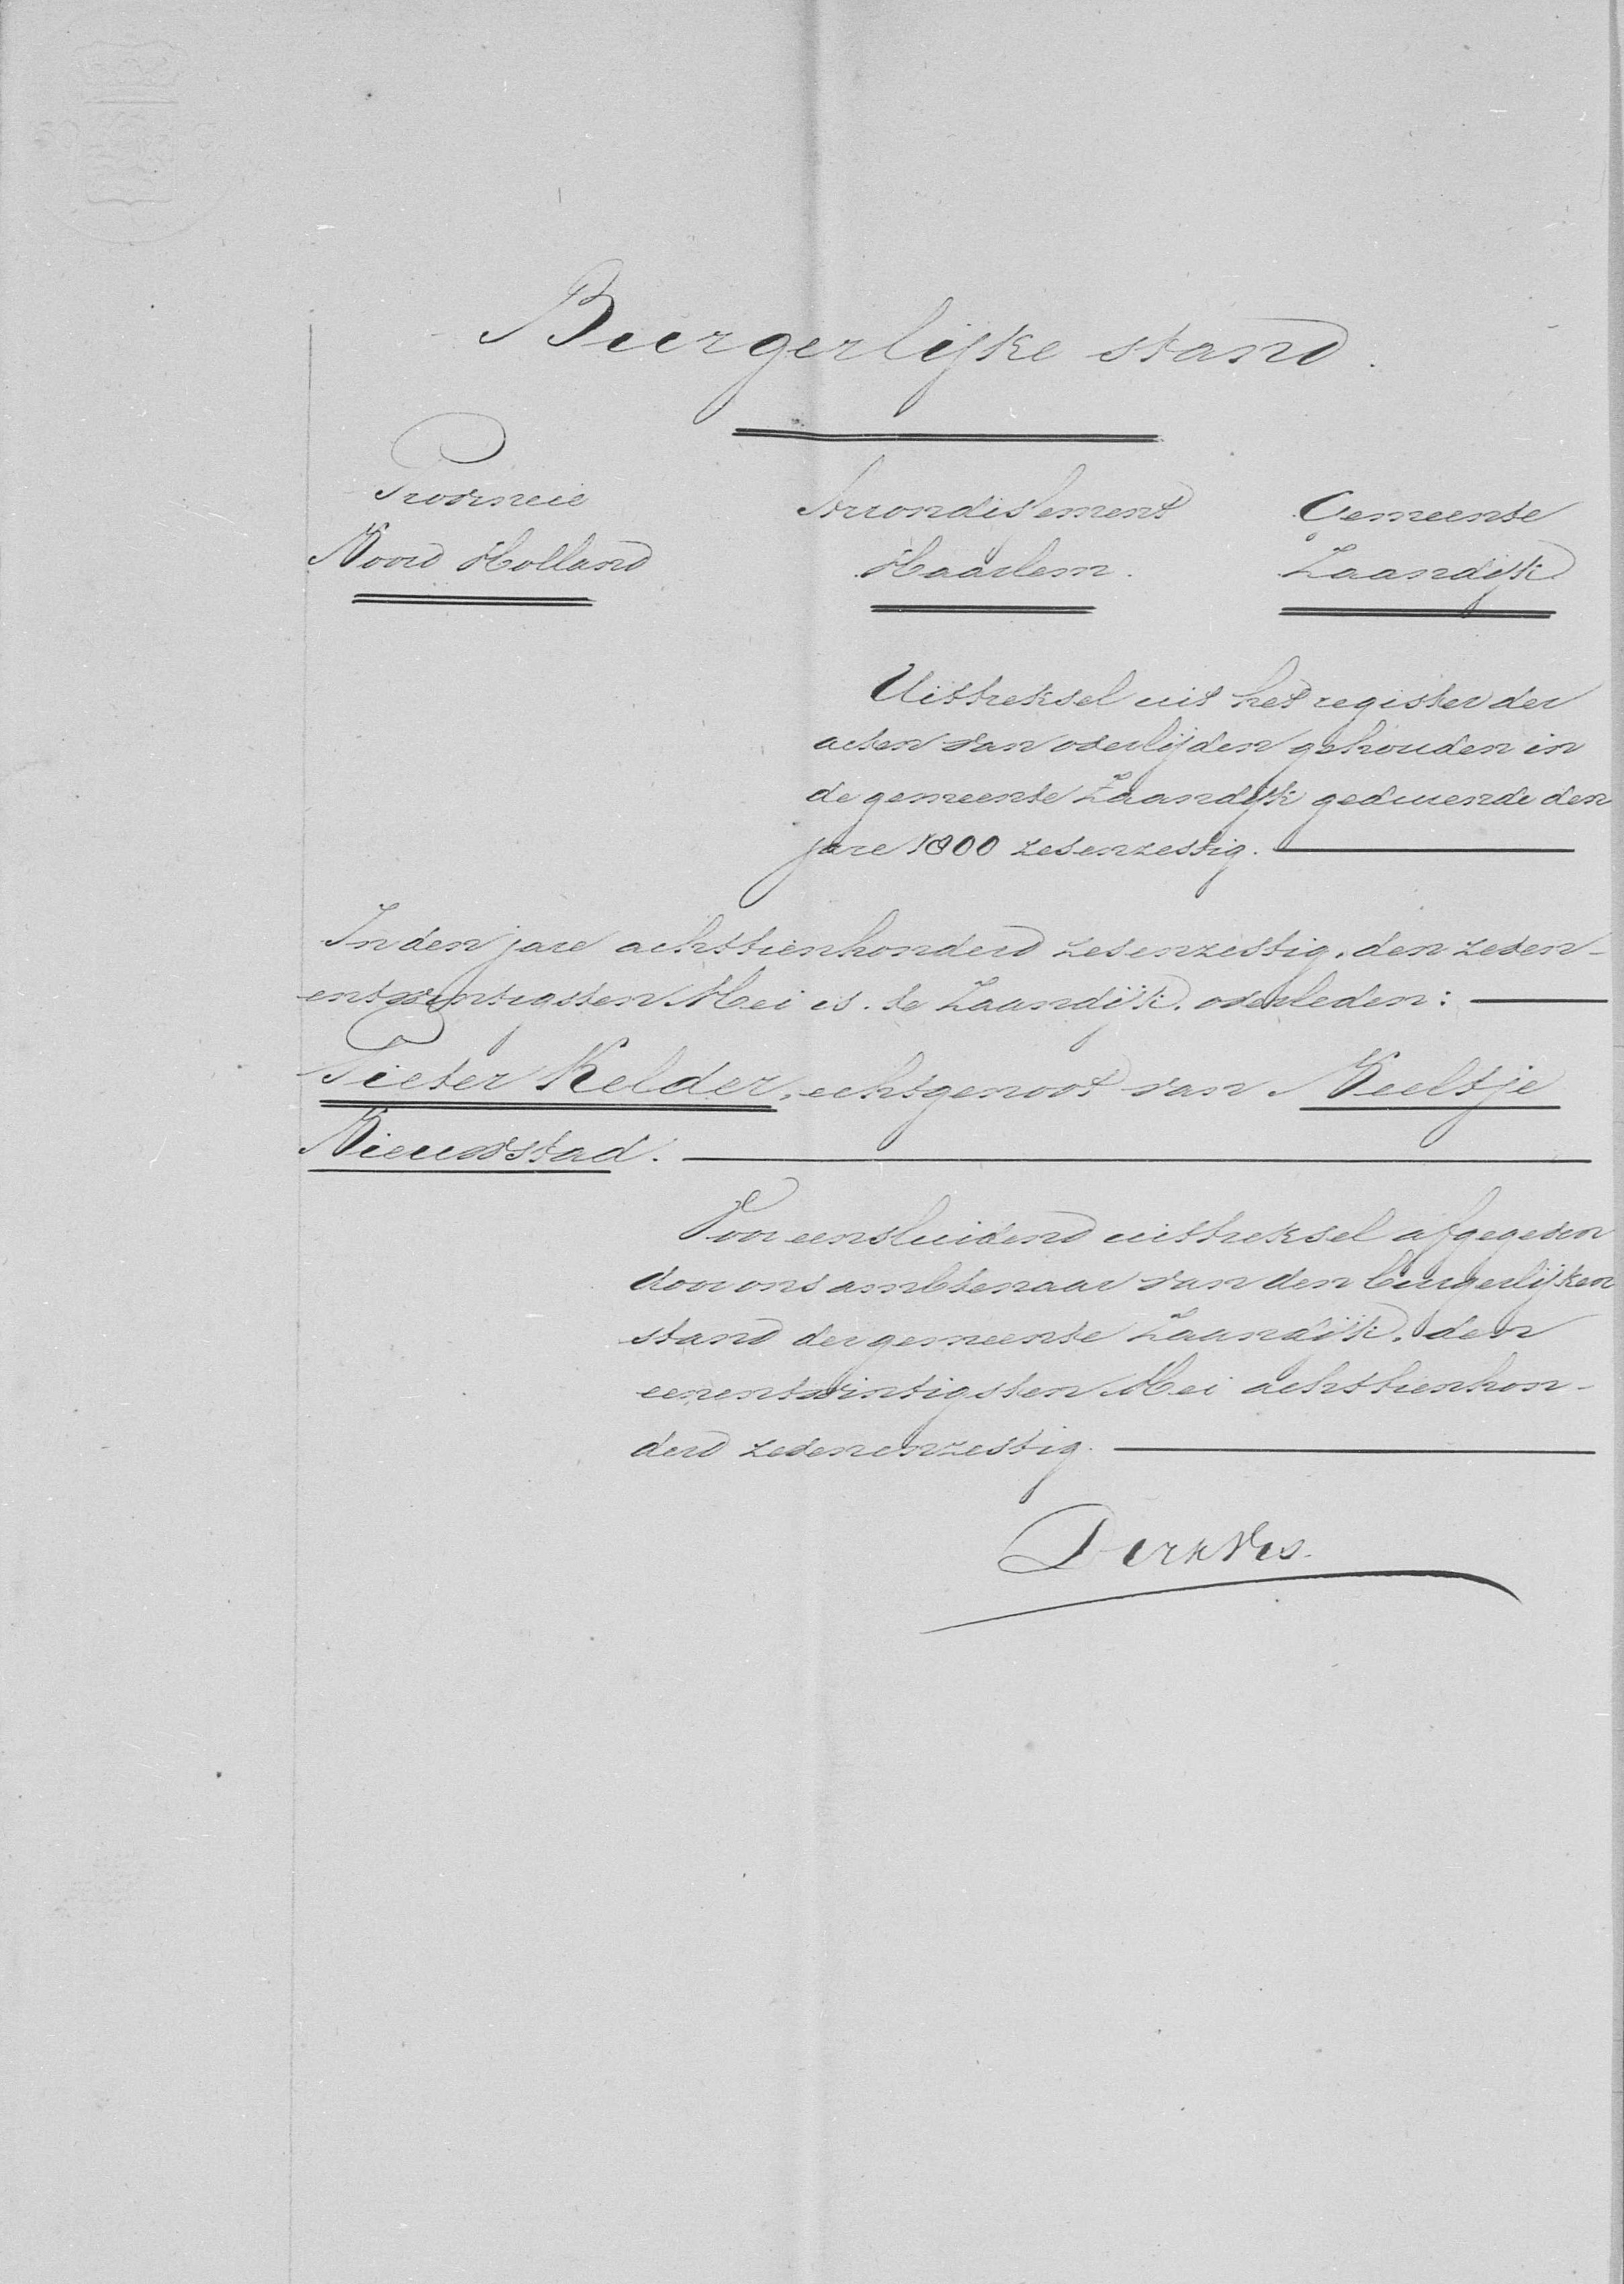 Burgerlijke stand.
Provincie Arrondissement Gemeente
Noord Holland Haarlem. Zaandijk
Uittreksel uit het register der
acten van overlijden gehouden in
de gemeente Zaandijk gedurende den
jare 1800 zesenzestig.
In den jare achttienhonderd zesenzestig, den zeven-
entwintigsten Mei is te Zaandijk overleden:
Pieter Kelder, echtgenoot van Neeltje
Nieuwstad.
Voor eensluidend uittreksel afgegeven
door ons ambtenaar van den burgerlijken
stand der gemeente Zaandijk, den
eenentwintigsten Mei achttienhon-
derd zevenenzestig.
Dirk Vis.